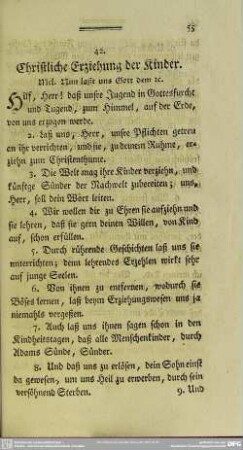 55
42.
Christliche Erziehung der Kinder.
Mel. Nun laßt uns Gott dem ꝛc.
Hilf, Herr! daß unsre Jugend in Gottesfurcht
und Tugend, zum Himmel, auf der Erde,
von uns erzogen werde.
2. Laß uns, Herr, unsre Pflichten getreu
an ihr verrichten, und sie, zu deinem Ruhme, er-
ziehn zum Christenthume.
3. Die Welt mag ihre Kinder verziehn, und
künftge Sünder der Nachwelt zubereiten; uns,
Herr, soll dein Wort leiten.
4. Wir wollen dir zu Ehren sie aufziehn und
sie lehren, daß sie gern deinen Willen, von Kind
auf, schon erfüllen.
5. Durch rührende Geschichten laß uns sie
unterrichten; denn lehrendes Erzehlen wirkt sehr
auf junge Seelen.
6. Von ihnen zu entfernen, wodurch sie
Böses lernen, laß beym Erziehungswesen uns ja
niemahls vergeßen.
7. Auch laß uns ihnen sagen schon in den
Kindheitstagen, daß alle Menschenkinder, durch
Adams Sünde, Sünder.
8. Und daß uns zu erlösen, dein Sohn einst
da gewesen, um uns Heil zu erwerben, durch sein
versöhnend Sterben.
9. Und